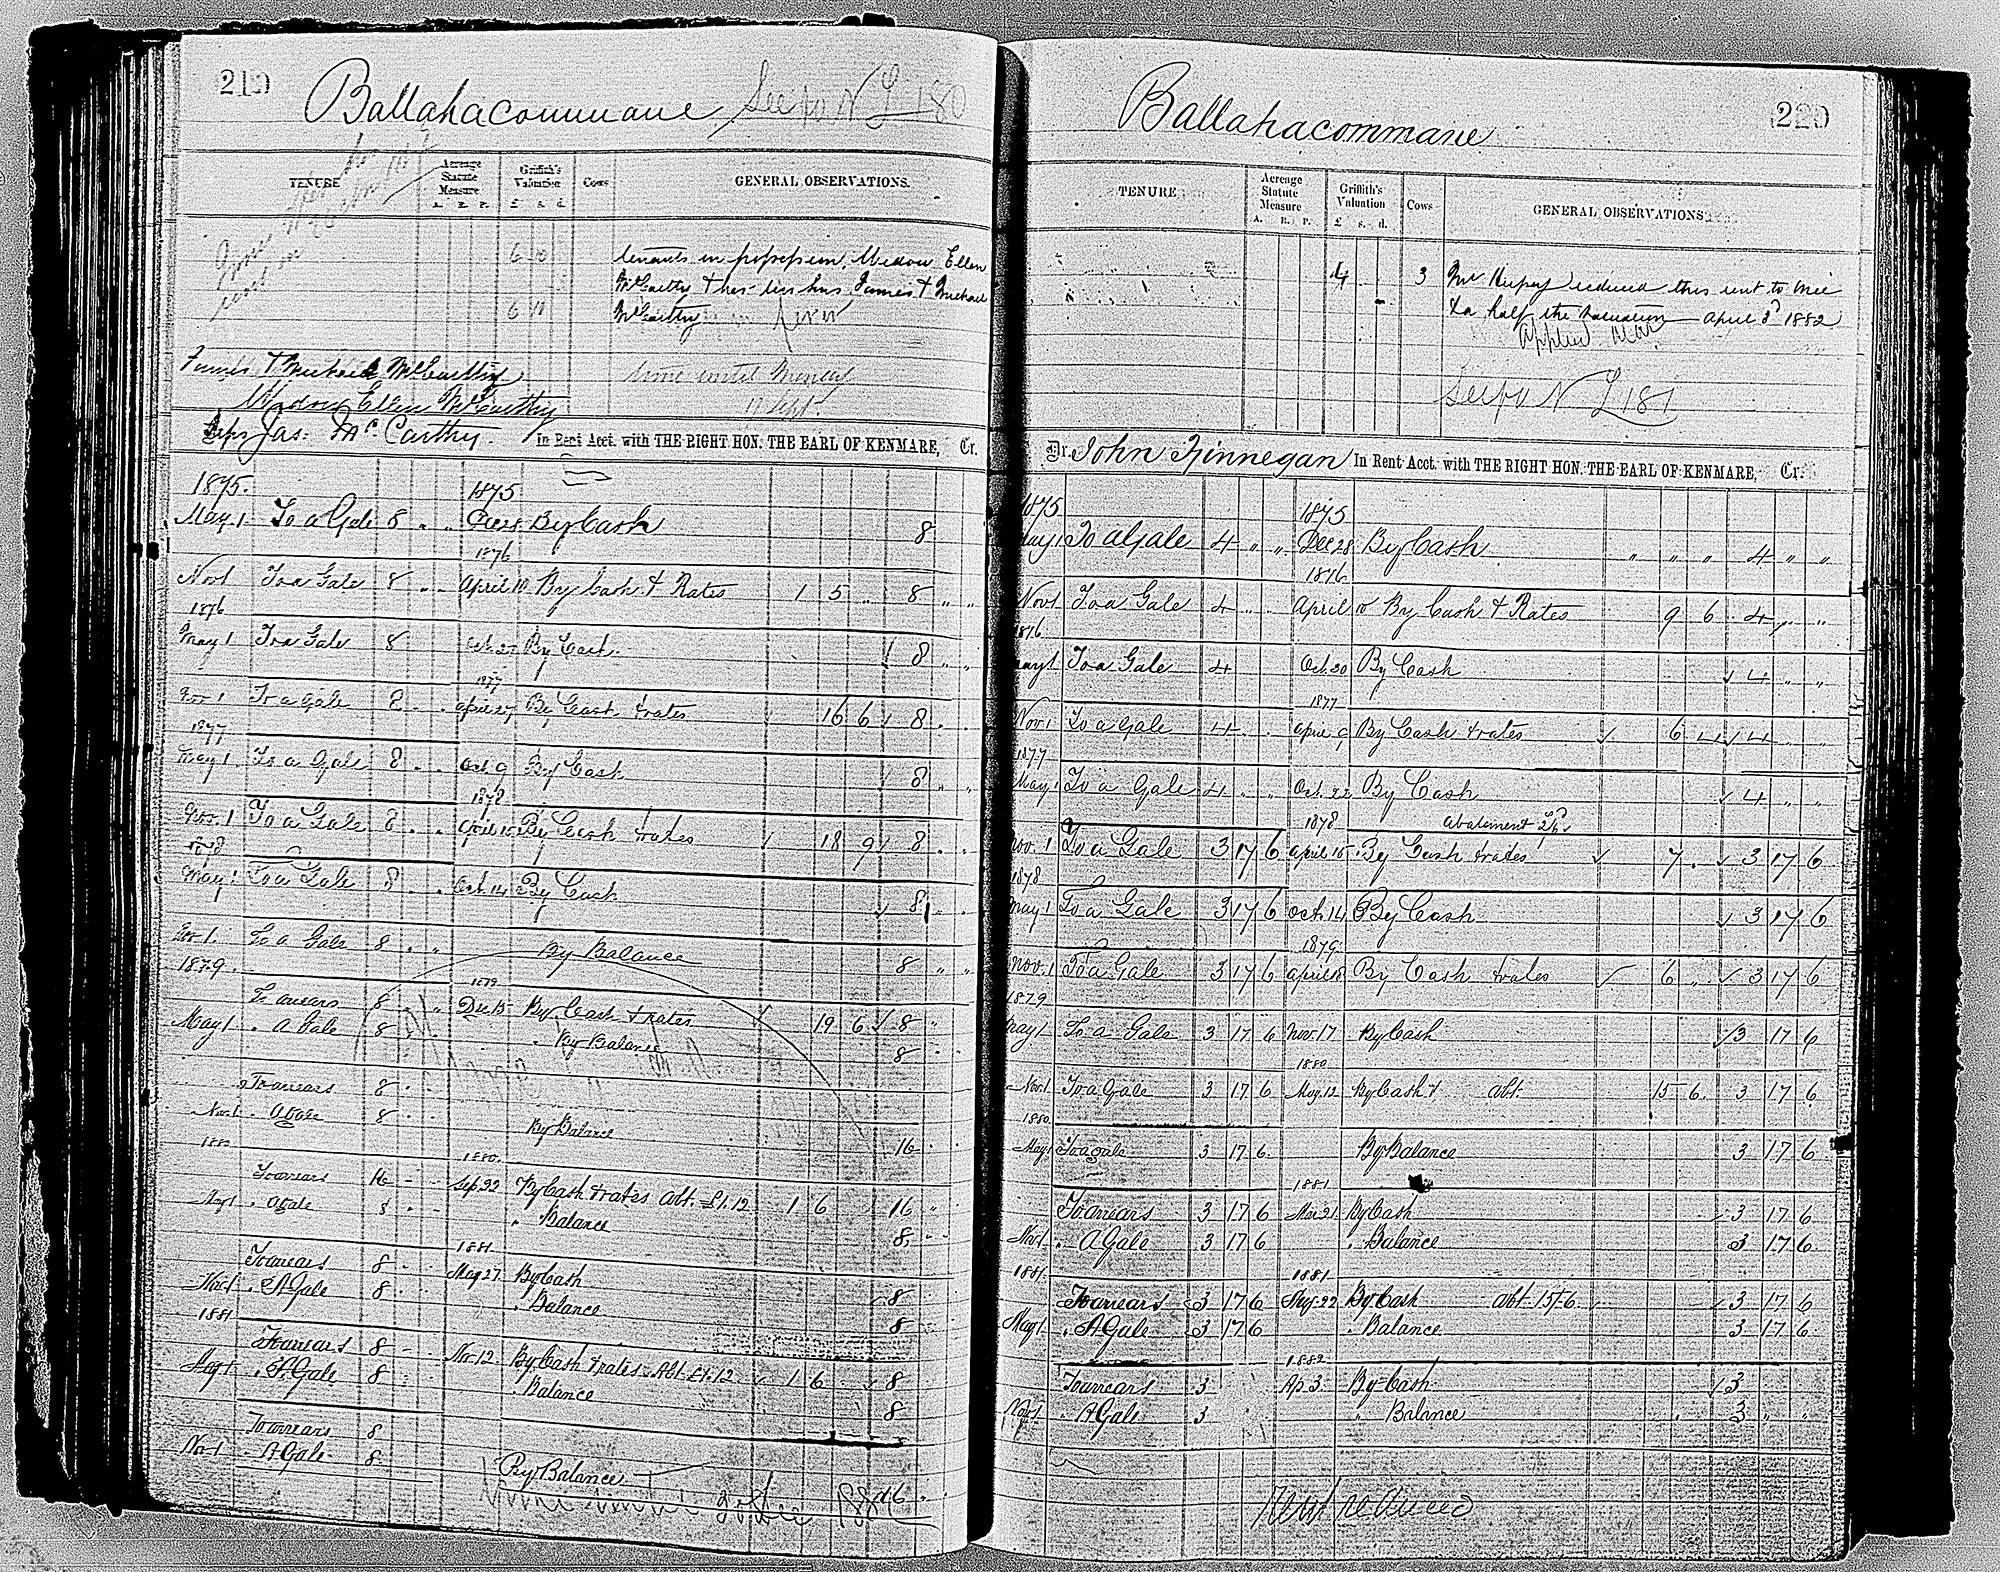 219
Ballahacommane See fo N L 180
TENURE
Acreage Statute Measure
A. R. P.
Griffith's Valuation
£ s. d.
Cows
GENERAL OBSERVATIONS.
6 10
tenants in possession, Widow Ellen
McCarthy & her sons James & Michael
6 10
McCarthy
James & Michael McCarthy
time until Monday
Widow Ellen McCarthy
17 Sept.
Reps Jas: McCarthy. In Rent Acct. with THE RIGHT HON. THE EARL OF KENMARE, Cr.
1875. 1875
May 1 To a Gale 8 " " Dec 28 By Cash 8
1876
Nov 1 To a Gale 8 " " April 10 By Cash & Rates 1 5 " 8 " "
1876
May 1 To a Gale 8 Oct. 27 By Cash 8 " "
1877
Nov 1 To a Gale 8 " " April 27 By Cash & rates 16 6 8 " "
1877
May 1 To a Gale 8 " " Oct. 9 By Cash 8 " "
1878
Nov. 1 To a Gale 8 " " April 15 By Cash & rates 18 9 8 " "
1878
May 1 To a Gale 8 " " Oct. 14 By Cash 8 " "
Nov 1. To a Gale 8 " " By Balance 8 " "
1879. 1879
To arrears 8 " " Dec 15 By Cash & rates 19 6 8 "
May 1 " A Gale 8 " " " By Balance 8 " "
To arrears 8 " "
Nov 1 " A Gale 8 " " By Balance 16 " "
1880 1880.
To arrears 16 " " Sep. 22 By Cash & rates abt. £1.12 1 6 16 "
May 1 " A Gale 8 " " " Balance 8 " "
1881.
To arrears 8 " " May 27 By Cash 8
Nov 1 " A Gale 8 " " " Balance 8
1881
To arrears 8 " " Nov. 12 By Cash & rates. Abt. £1.12 1 6 8
May 1 " A Gale 8 " " " Balance 8
To arrears 8
Nov 1 " A Gale 8 " " By Balance 16 "
220
Ballahacommane
TENURE
Acreage Statute Measure
A. R. P.
Griffith's Valuation
£ s. d.
Cows
GENERAL OBSERVATIONS
4 " " 3
Mr Hussey reduced this rent to
April 3d 1882
See fo N L 181
Dr. John Finnegan In Rent Acct. with THE RIGHT HON. THE EARL OF KENMARE, Cr.
1875 1875
May 1 To a Gale 4 " " Dec 28 By Cash " " " 4 " "
1876
Nov 1 To a Gale 4 " " April 10 By Cash & Rates 9 6 4 " "
1876
May 1 To a Gale 4 Oct. 20 By Cash 4 " "
1877
Nov. 1 To a Gale 4 " " April 9 By Cash & rates 6 4 4 " "
1877
May 1 To a Gale 4 " " Oct. 22 By Cash 4 " "
1878 Abatement
Nov. 1 To a Gale 3 17 6 April 15 By Cash & rates 7 " 3 17 6
1878
May 1 To a Gale 3 17 6 Oct. 14 By Cash 3 17 6
1879
Nov. 1 To a Gale 3 17 6 April 18 By Cash & rates 6 " 3 17 6
1879
May 1 To a Gale 3 17 6 Nov. 17 By Cash 3 17 6
1880
Nov. 1 To a Gale 3 17 6 May. 12 By Cash & abt. 15 6 3 17 6
1880
May 1 To a gale 3 17 6 By Balance 3 17 6
1881
To arrears 3 17 6 Mar. 21 By Cash 3 17 6
Nov 1 " A Gale 3 17 6 " Balance 3 17 6
1881. 1881
To arrears 3 17 6 22 By Cash abt. 15/6 3 17 6
May 1 " A Gale 3 17 6 " Balance 3 17 6
1882
To arrears 3 Ap. 3 By Cash 3
Nov 1 " A Gale 3 " Balance 3 " "
Rent reduced